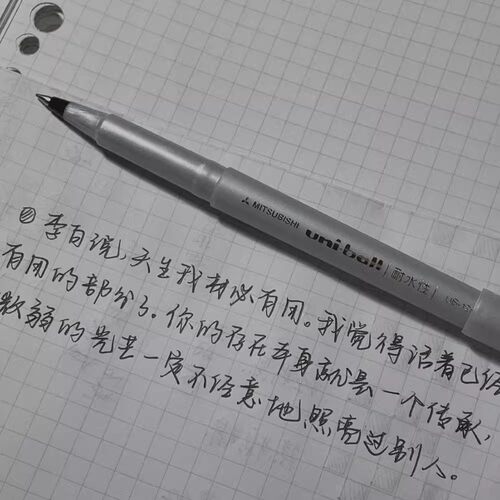 MITSUBISHI uni-ball 耐水性 UB-15
李白说,天生我材必有用。我觉得活着已经
有用的部分了。你的存在本身就是一个传承,
微弱的光芒一定不经意地照亮过别人。